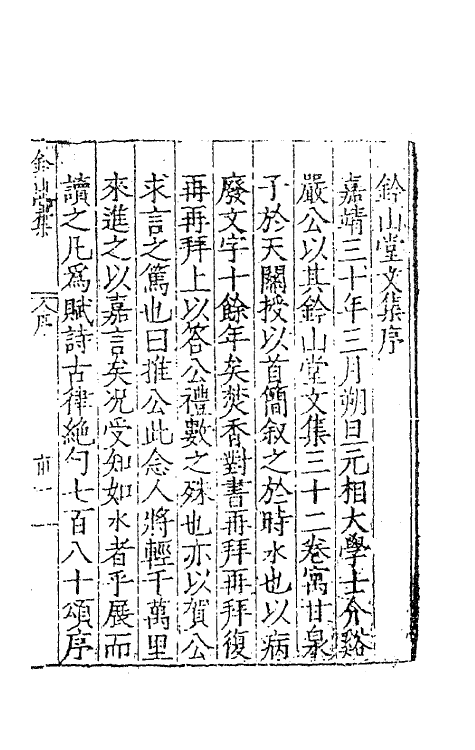 鈐山堂文集序
嘉靖三十年三月朔旦元相大學士介谿
嚴公以其鈐山堂文集三十二卷寓甘泉
子於天關授以首簡叙之於時水也以病
廢文字十餘年矣焚香對書再拜再拜復
再再拜上以答公禮數之殊也亦以賀公
求言之篤也曰推公此念人將輕千萬里
來進之以嘉言矣况受知如水者乎展而
讀之凡爲賦詩古律絶句七百八十頌序
鈐山堂集
序
前一